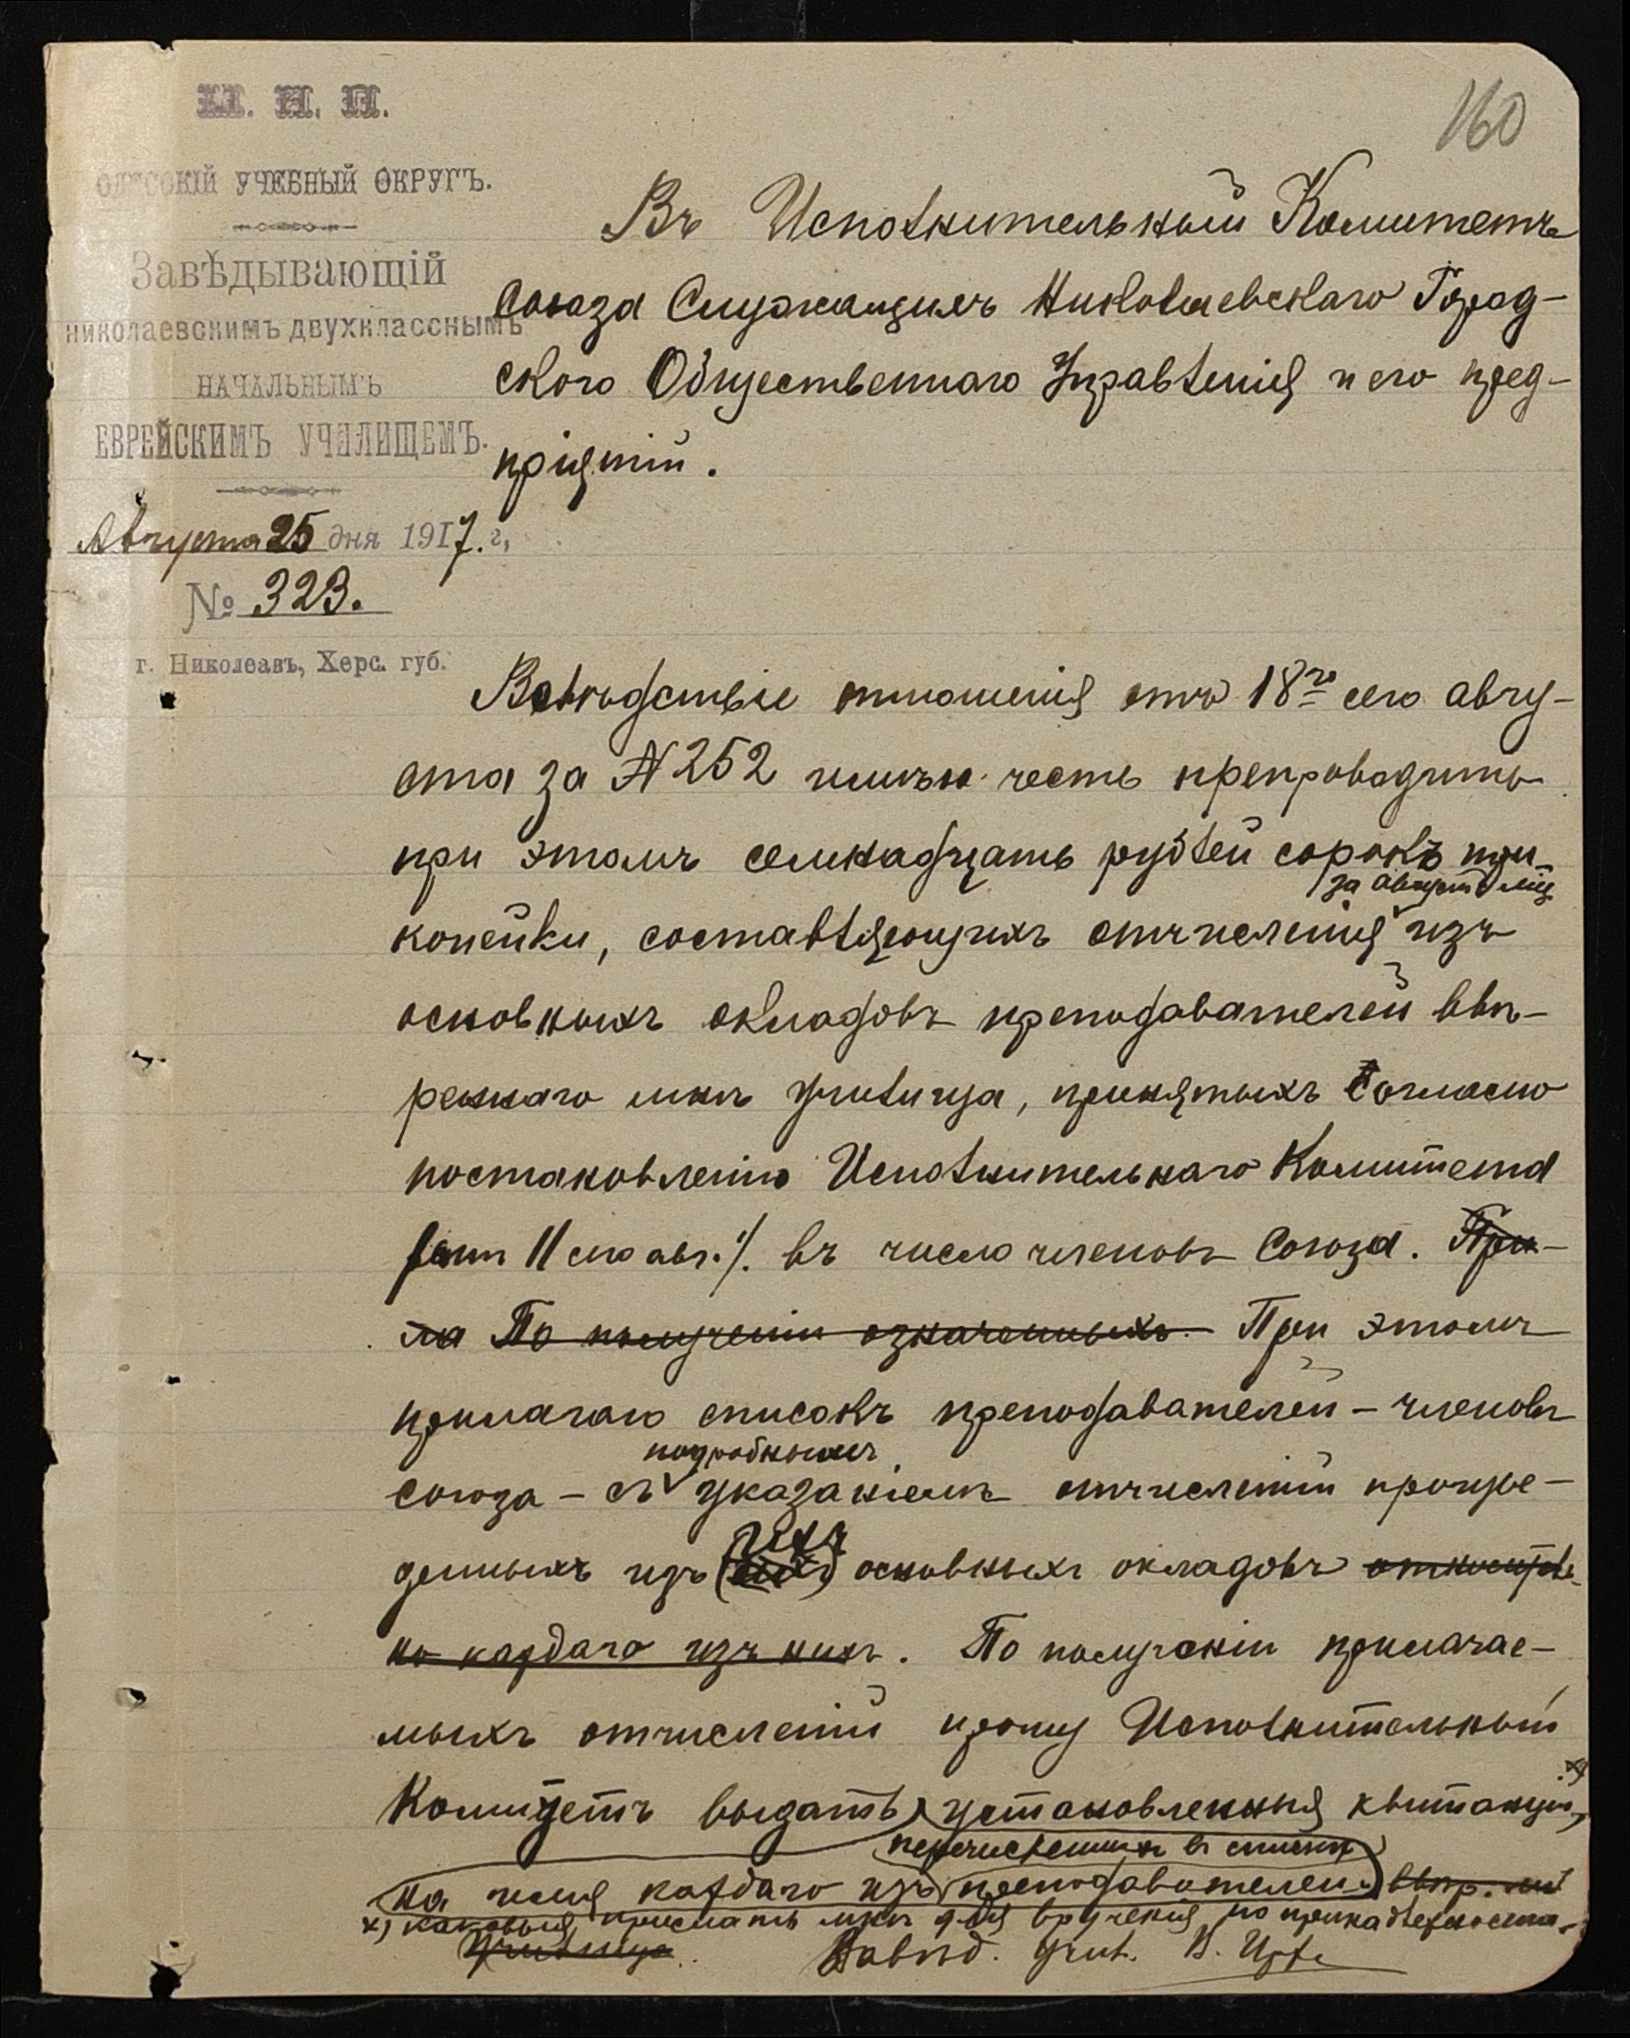 М. Н. П.
ОДЕССКІЙ УЧЕБНЫЙ ОКРУГЪ.
Завѣдывающій
николаевскимъ двухкласснымъ
НАЧАЛЬНЫМЪ
ЕВРЕЙСКИМЪ УЧИЛИЩЕМЪ.
Августа 25 дня 1917. г.
№ 323.
г. Николеавъ, Херс. губ.
160
Въ Исполнительный Комитетъ
Союза Служащихъ Николаевскаго Город-
ского Общественнаго Управленія и его пред-
пріятій.
Вслѣдствіе отношенія отъ 18го сего авгу-
ста за № 252 имѣю честь препроводить
при этомъ семнадцать рублей сорокъ три
за августъ мѣс
копейки, составляющихъ отчисленія изъ
основныхъ окладовъ преподавателей ввѣ-
реннаго мнѣ училища, принятыхъ согласно
постановленію Исполнительнаго Комитета
/отъ 11 сего авг./. въ число членовъ Союза. При-
ла По полученіи означенныхъ При этомъ
прилагаю списокъ преподавателей - членовъ
подробнымъ
союза - съ указаніемъ отчисленій произве-
ихъ
денныхъ изъ основныхъ окладовъ относитель-
но каждаго изъ нихъ. По полученіи прилагае-
мыхъ отчисленій прошу Исполнительный
Комитетъ выдать установленныя квитанціи, х)
перечисленныхъ въ списке
на имя каждаго изъ преподавателей ввѣр. мнѣ
х) каковыя прислать мнѣ для врученія по принадлежности.
училища. Завѣд. учил.